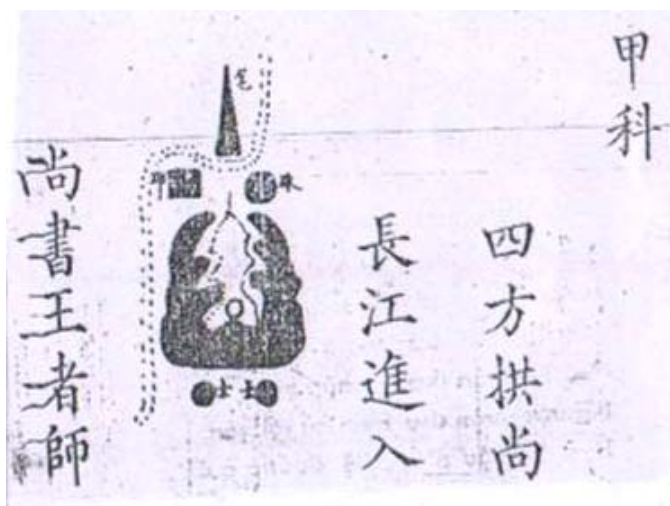 甲科
四方拱尚
長江進入
笔
珠
印
土土
尚書王者師